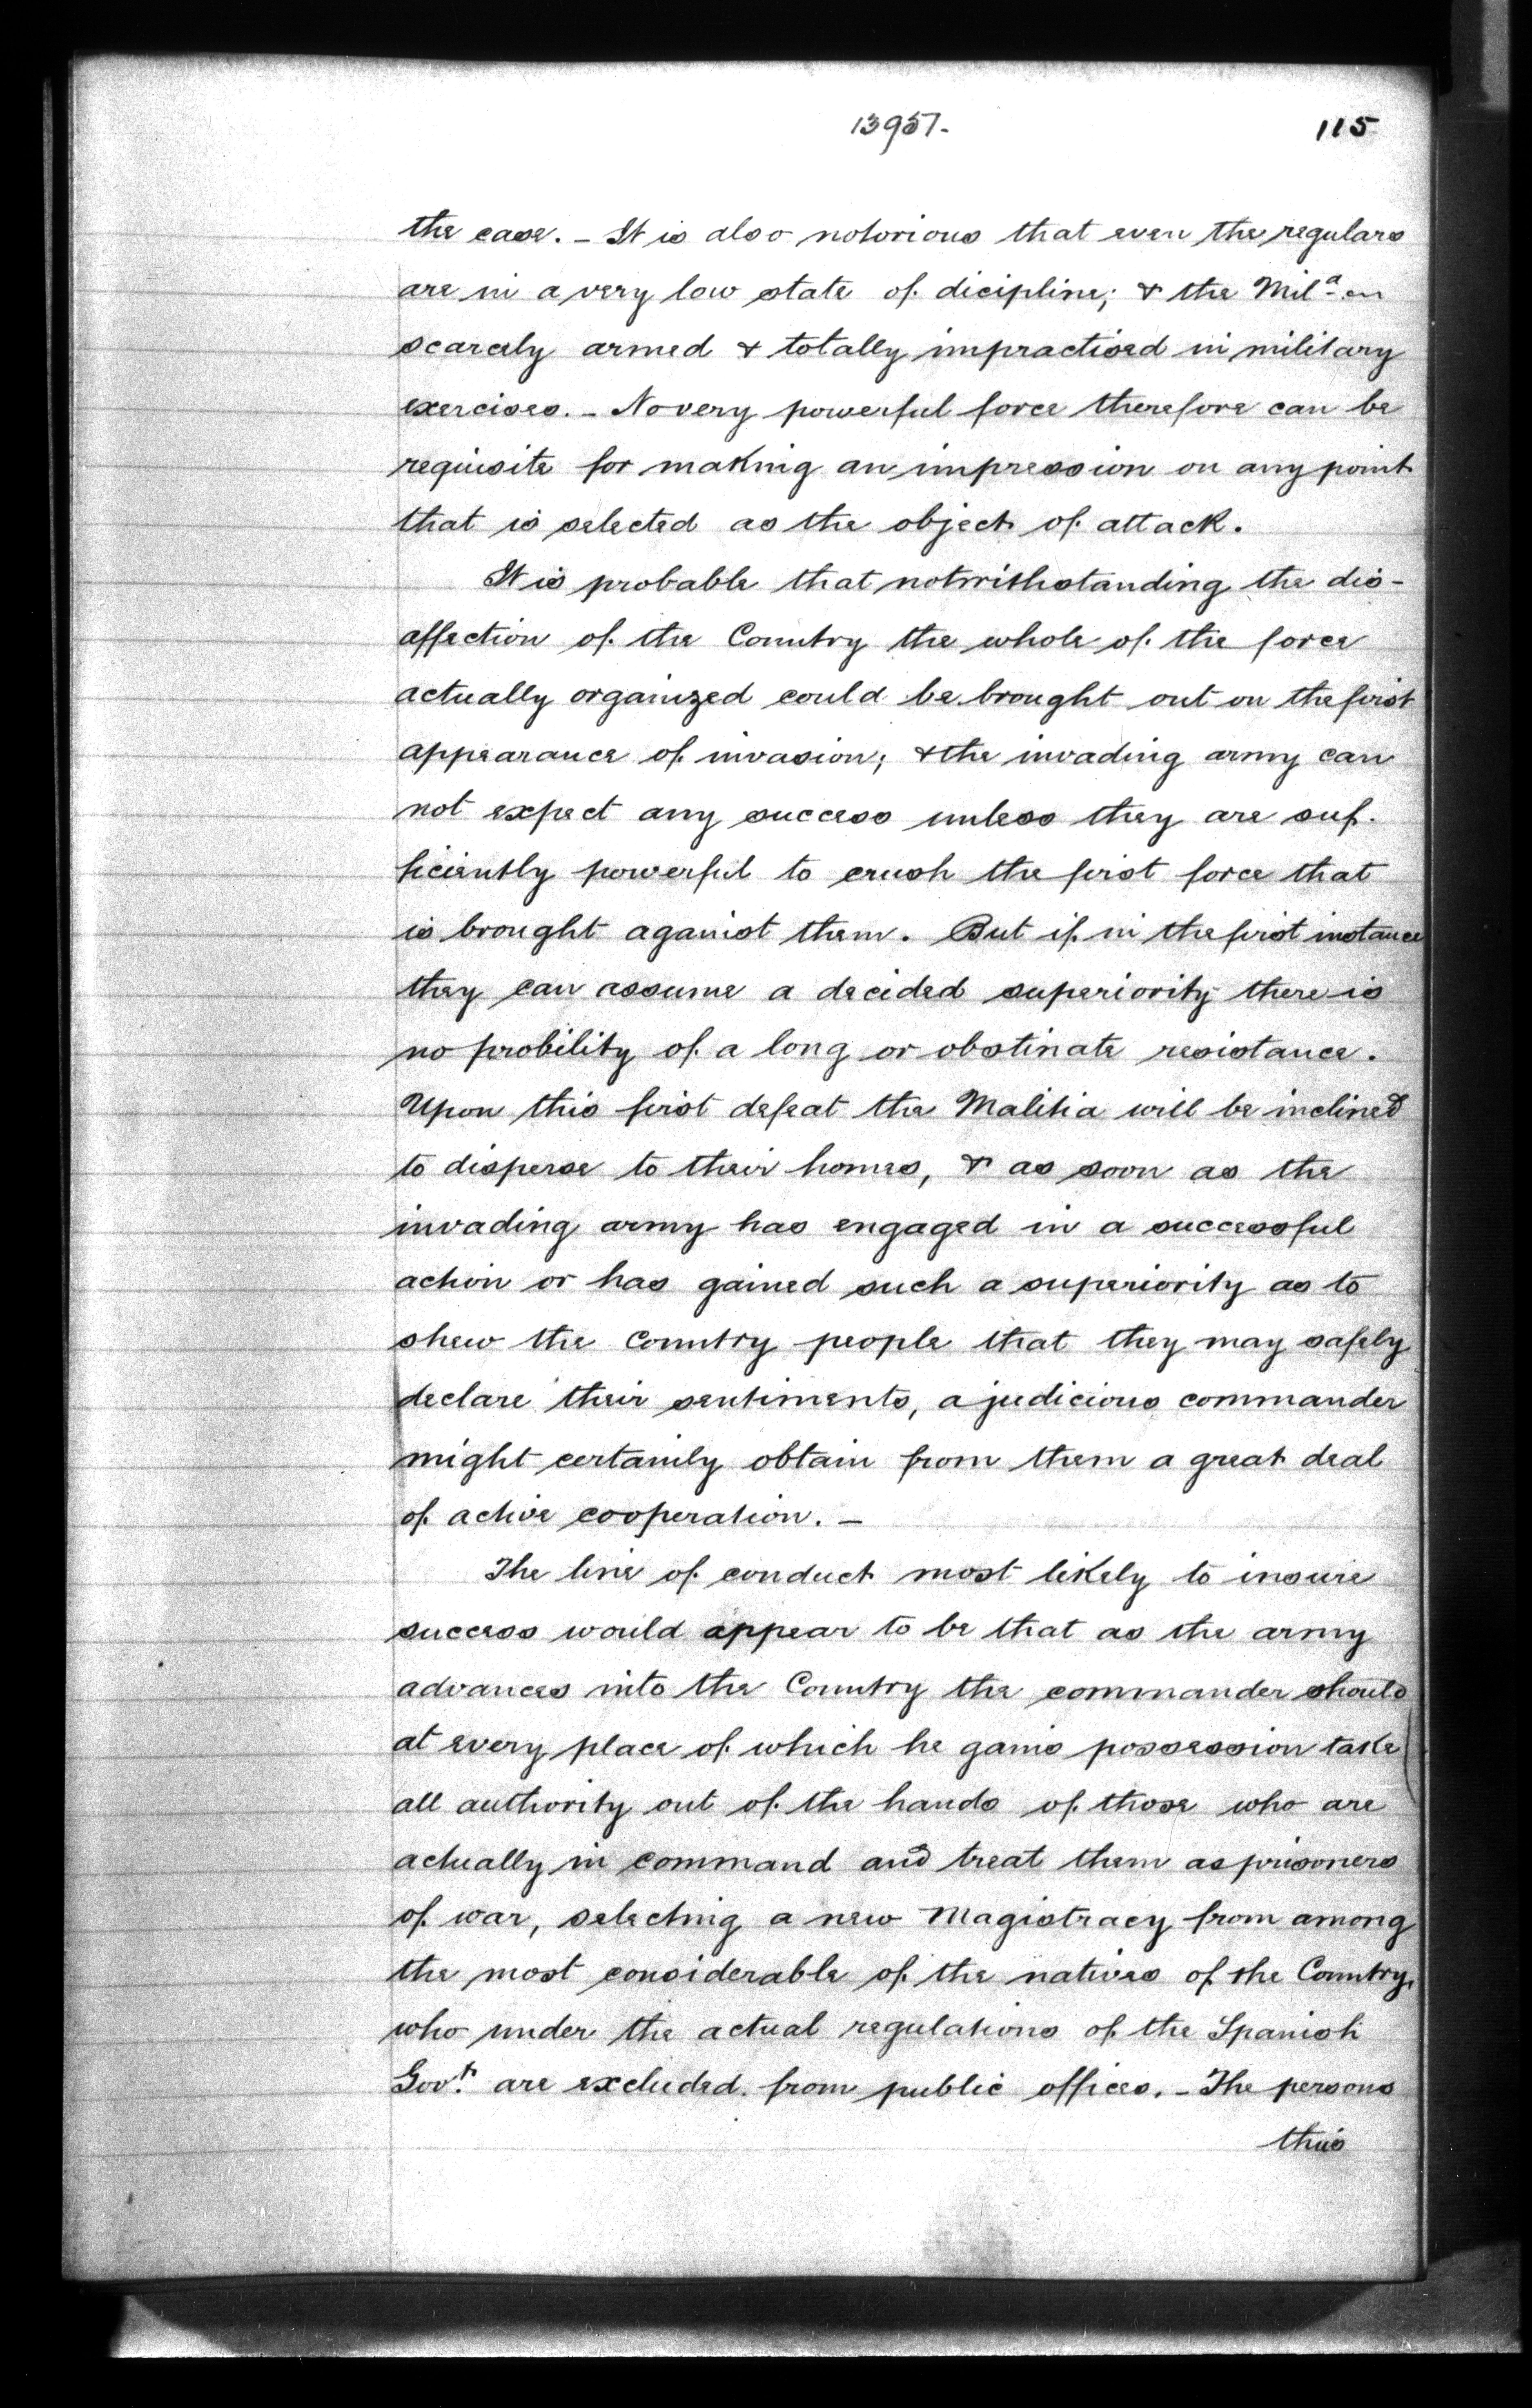 13957.
115
the case. - It is also notorious that even the regulars
are in a very low state of dicipline; & the Mil.a en
scarcely armed & totally impractised in military
exercises. - No very powerful force therefore can be
requisite for making an impression on any point
that is selected as the object of attack.
It is probable that notwithstanding the dis-
affection of the Country the whole of the force
actually organized could be brought out on the first
appearance of invasion; & the invading army can
not expect any success unless they are suf-
ficiently powerful to crush the first force that
is brought against them. But if in the first instance
they can assume a decided superiority there is
no probility of a long or obstinate resistance.
Upon this first defeat the Malitia will be inclined
to disperse to their homes, & as soon as the
invading army has engaged in a successful
action or has gained such a superiority as to
shew the Country people that they may safely
declare their sentiments, a judicious commander
might certainly obtain from them a great deal
of active cooperation. -
The line of conduct most likely to insure
success would appear to be that as the army
advances into the Country the commander should
at every place of which he gains possession take
all authority out of the hands of those who are
actually in command and treat them as prisoners
of war, selecting a new Magistracy from among
the most considerable of the natives of the Country,
who under the actual regulations of the Spanish
Gov.t are excluded from public offices. - The persons
thus